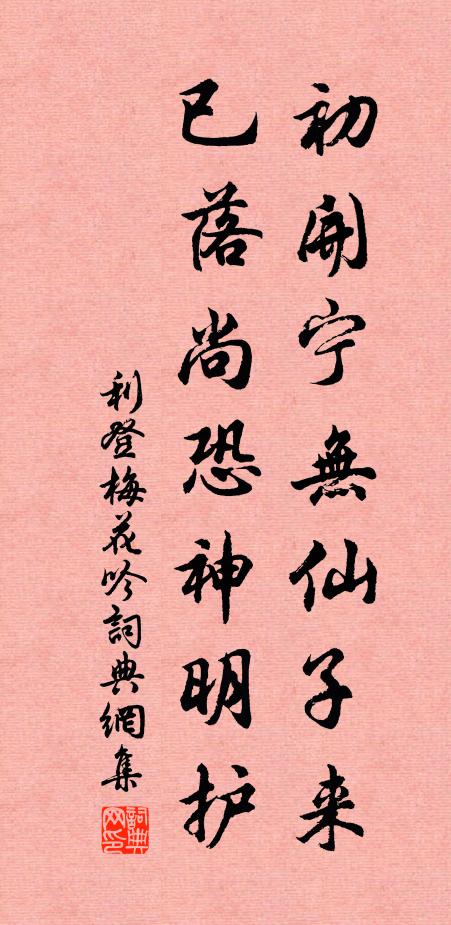 初開宁無仙子来
已落尚恐神明护
利登梅花吟詞典網集
詞典网印